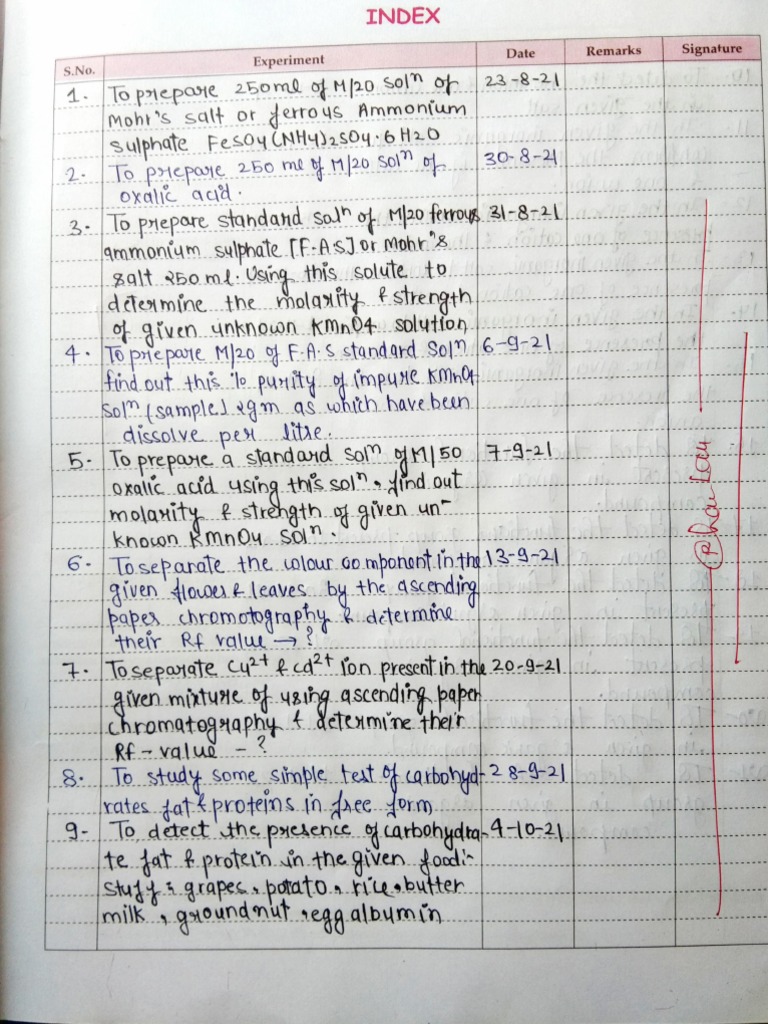 INDEX
S.No. Experiment Date Remarks Signature
1. To prepare 250ml of M/20 solⁿ of 23-8-21
Mohr's salt or ferrous Ammonium
sulphate FeSO4(NH4)2SO4·6H2O
2. To prepare 250 ml of M/20 solⁿ of 30-8-21
oxalic acid.
3. To prepare standard solⁿ of M/20 ferrous 31-8-21
ammonium sulphate [F.A.S] or Mohr's
salt 250 ml. Using this solute to
determine the molarity & strength
of given unknown KMnO4 solution
4. To prepare M/20 of F.A.S standard Solⁿ 6-9-21
find out this % purity of impure KMnO4
Solⁿ (sample) 2gm as which have been
dissolve per litre.
5. To prepare a standard solⁿ of M/50 7-9-21
oxalic acid using this solⁿ, find out
molarity & strength of given un-
known KMnO4 Solⁿ.
6. To separate the colour component in the 13-9-21
given flower & leaves by the ascending
paper chromotography & determine
their Rf value → ?
7. To separate Cu2+ & Cd2+ ion present in the 20-9-21
given mixture of using ascending paper
chromatography & determine their
Rf - value - ?
8. To study some simple test of carbohyd- 28-9-21
rates fat & proteins in free form
9- To detect the presence of carbohydra- 4-10-21
te fat & protein in the given foodi-
stuff : grapes, potato, rice, butter
milk, groundnut, egg albumin